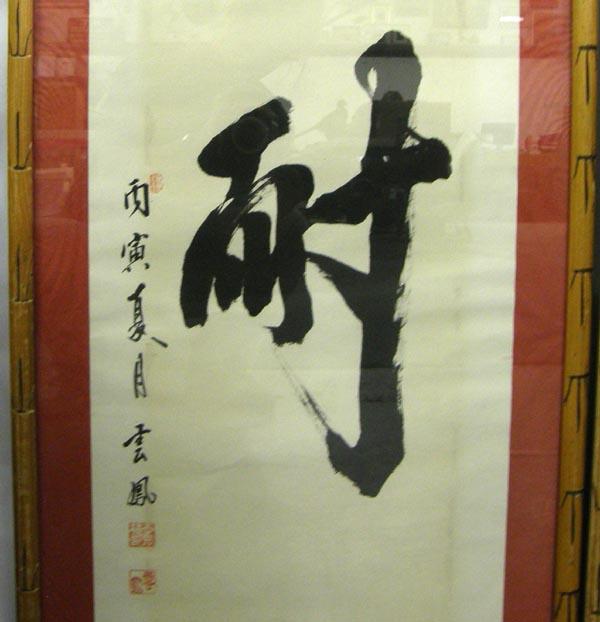 耐
丙寅夏月 雲鳳